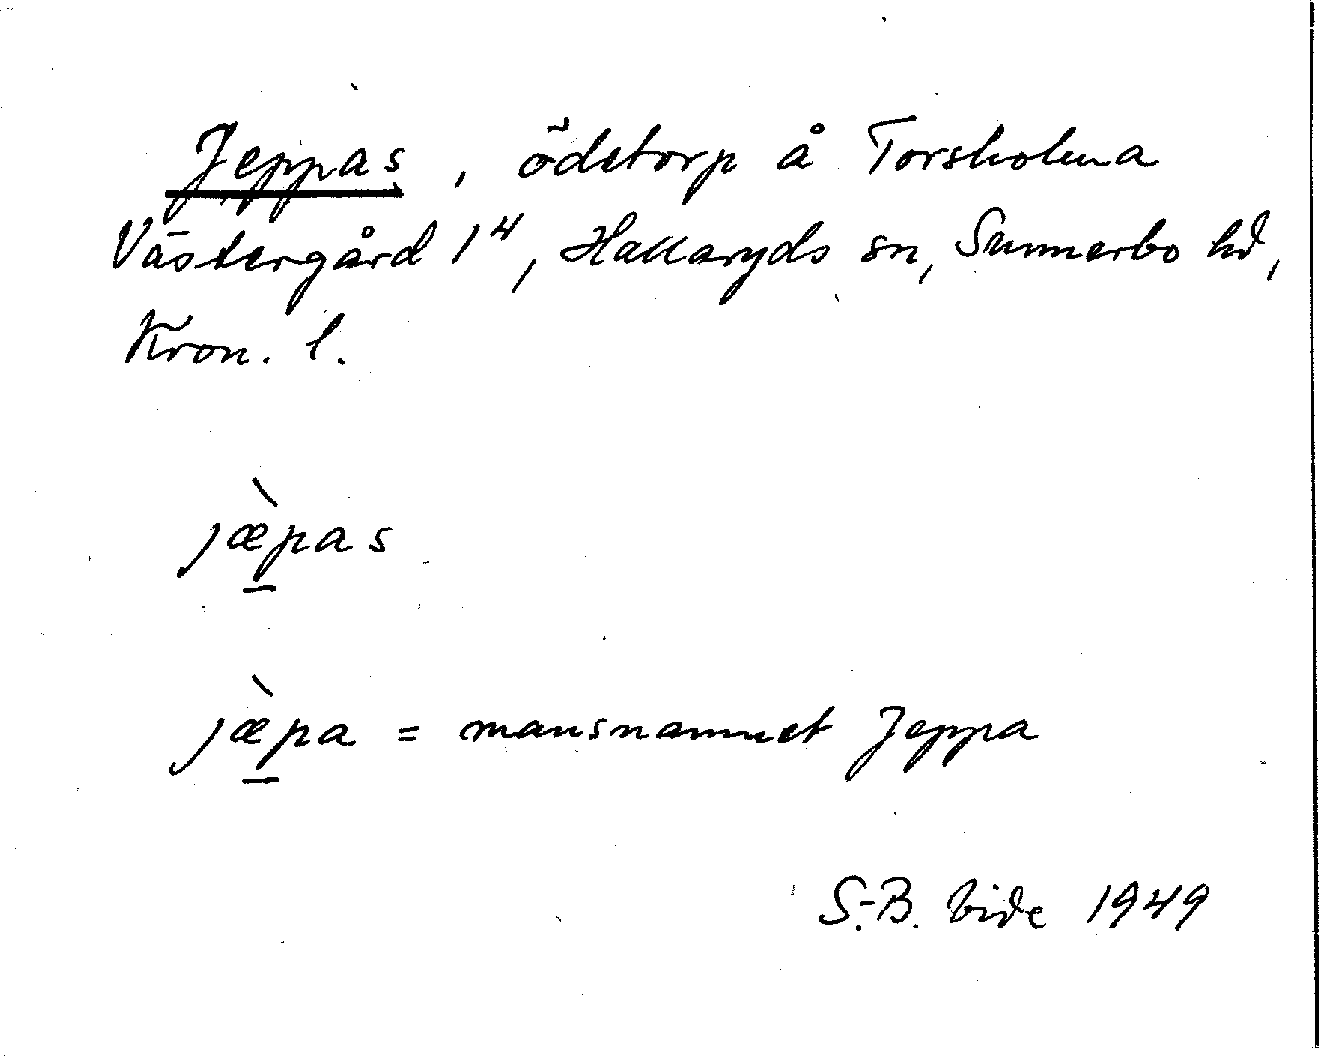 Jeppas, ödetorp å Torsholma
Västergård 1⁴, Hallaryds sn, Sunnerbo hd,
Kron. l.
jæ̀pas
jæ̀pa = mansnamnet Jeppa
S.-B. Vide 1949